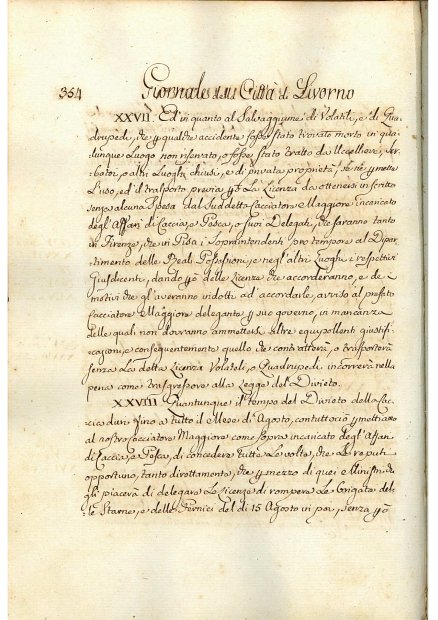 354 Giornale della Città di Livorno
XXVII. Ed in quanto al Salvaggiume di Volatili, e di Qua-
drupedi, che p qualche accidente fosse stato trovato morto in qua-
lunque Luogo non riservato, o fosse stato tratto da Uccelliere, Ser-
batoi, o altri Luoghi chiusi, e di privata proprietà, se ne pmette
L'uso, ed il trasporto previa però La Licenza da ottenersi in scritto
senza alcuna Spesa dal Suddetto Cacciatore Maggiore Incaricato
degl'Affari di Caccia, e Pesca, o suoi Delegati, che saranno tanto
in Firenze, che in Pisa i Soprintendenti pro tempore al Dipar-
timento delle Reali Possessioni, e negl'altri Luoghi i respettivi
Giusdicenti, dando però delle Licenze che accorderanno, e de
motivi che gl'averanno indotti ad accordarle, avviso al prefato
Cacciatore Maggiore delegante p suo governo, in mancanza
delle quali non dovranno ammettersi altre equipollenti giustifi-
cazioni, e conseguentemente quello che contratterà, o trasporterà
senza La detta Licenza Volatili, o Quadrupedi incorrerà nella
pena come trasgressore alla Legge del Divieto.
XXVIII. Quantunque il tempo del Divieto della Cac-
cia duri fino a tutto il Mese di Agosto, contuttociò pmettiamo
al nostro Cacciatore Maggiore come sopra incaricato degl'Affari
di Caccia, e Pesca, di concedere tutte Le volte, che Lo reputi
opportuno, tanto direttamente, che p mezzo di quei Ministri che
gli piacerà di delegare La Licenza di rompere Le Brigate del-
le Starne, e delle Pernici del dì 15 Agosto in poi, senza però